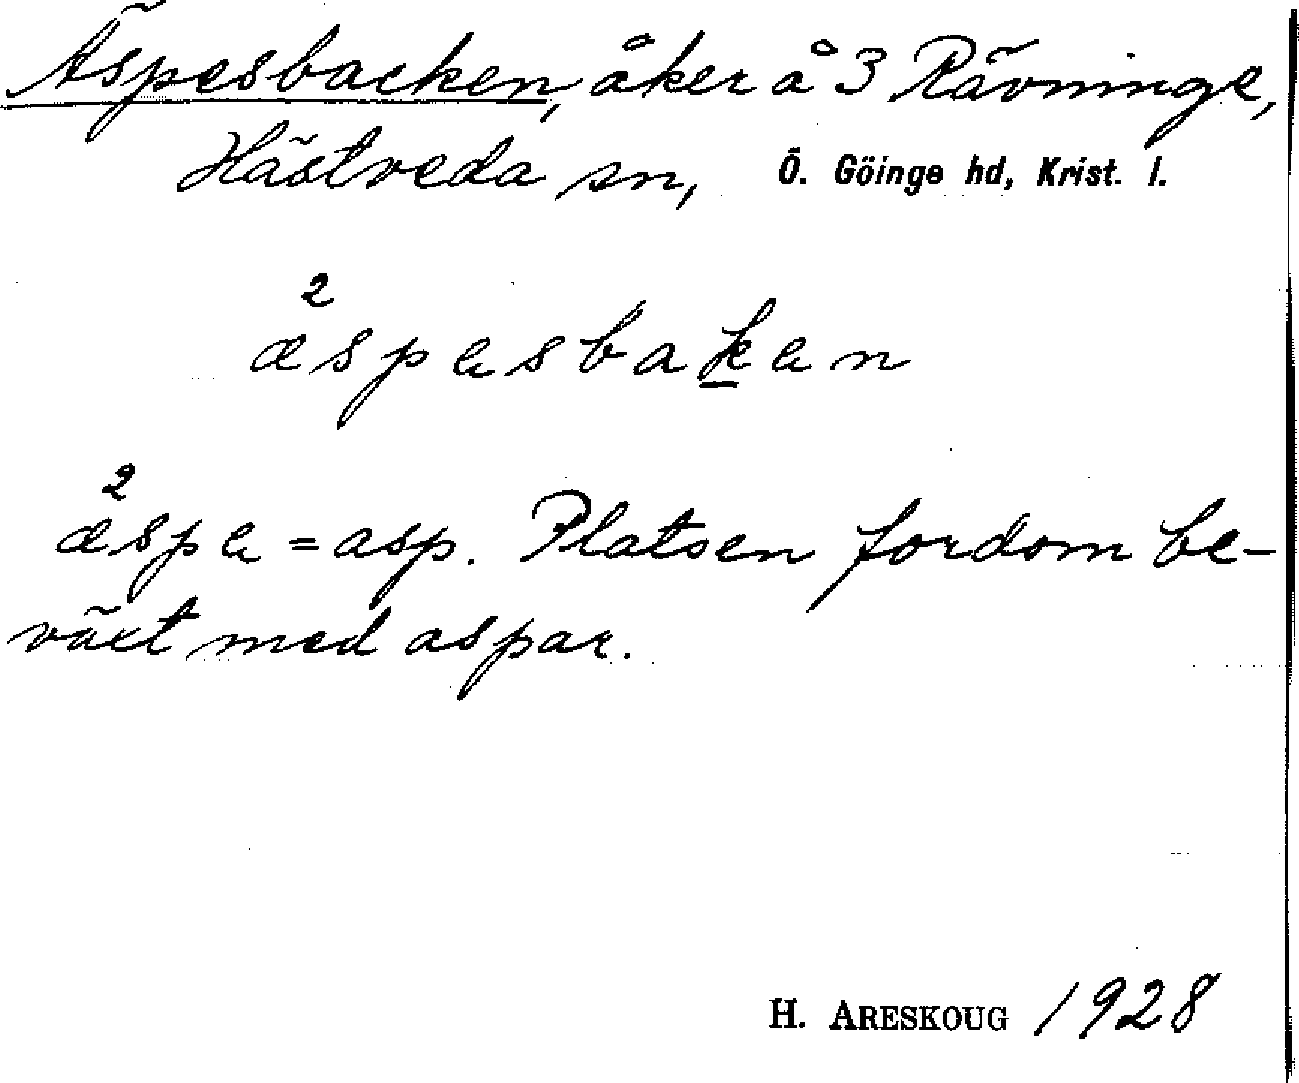 Äspesbacken, åker å 3 Rävninge,
Hästveda sn, Ö. Göinge hd, Krist. l.
2
æspesbaken
2
æspe = asp. Platsen fordom be-
växt med aspar.
H. ARESKOUG 1928